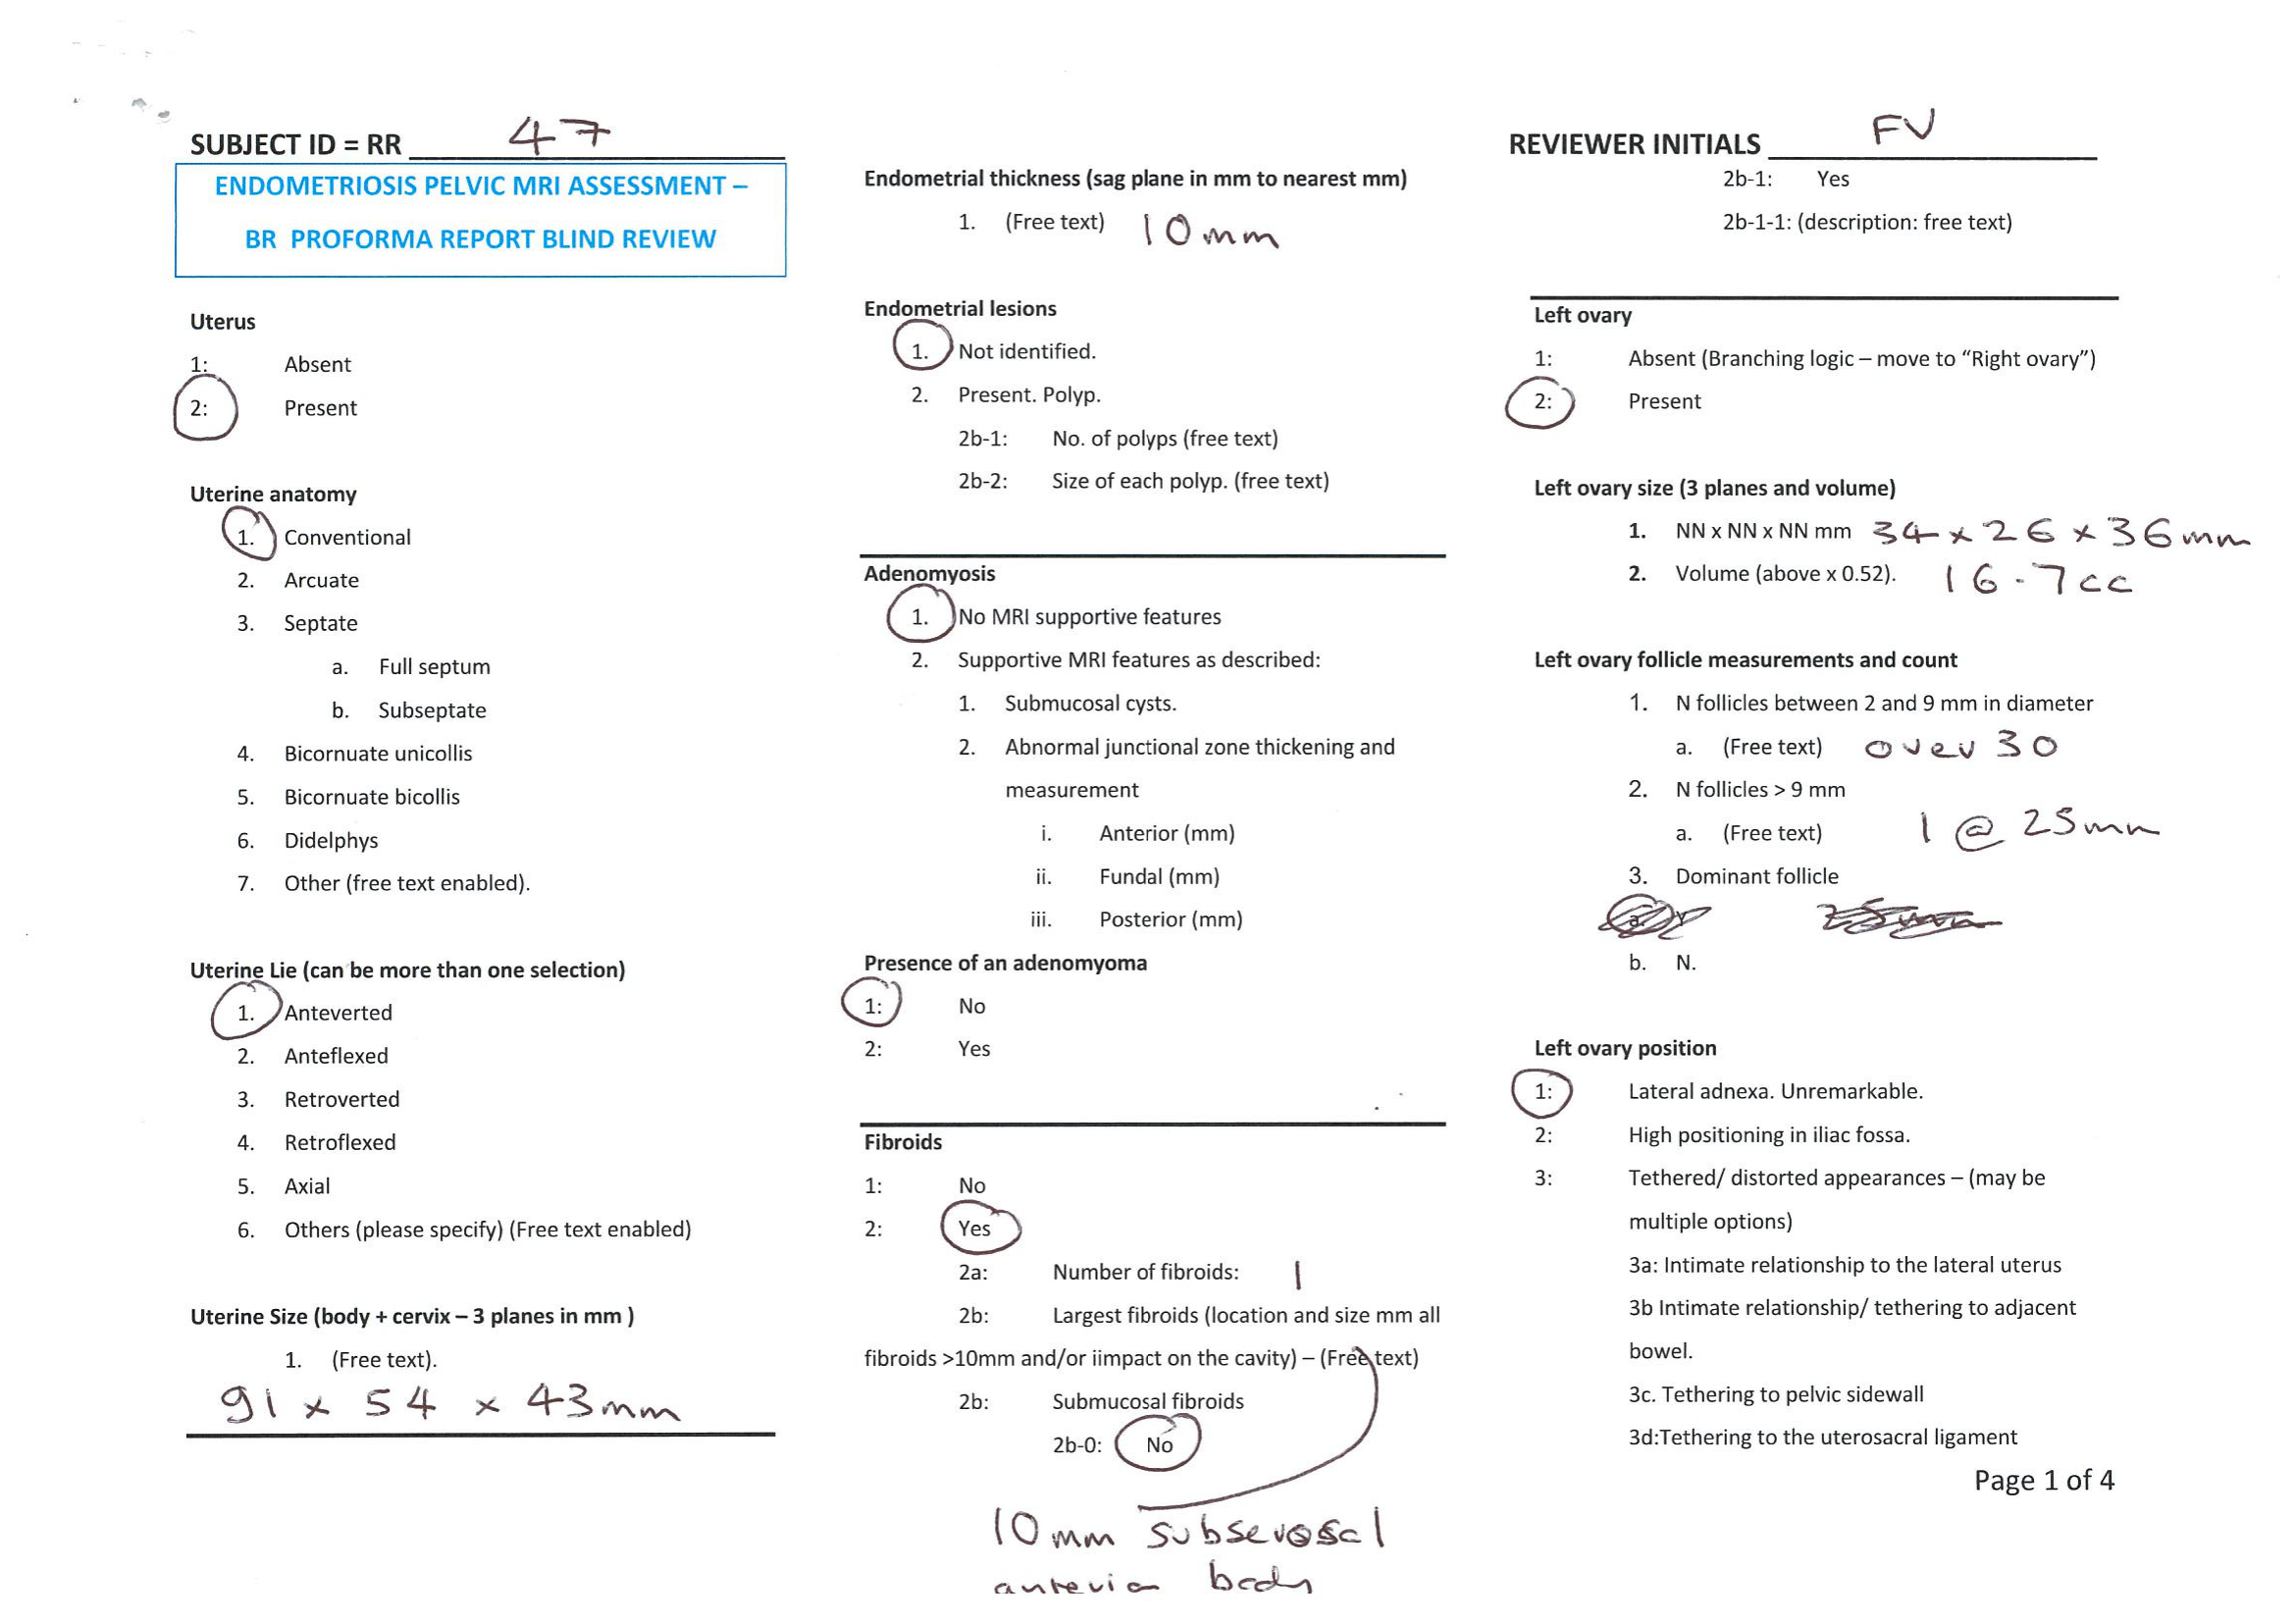 SUBJECT ID = RR 47
ENDOMETRIOSIS PELVIC MRI ASSESSMENT –
BR PROFORMA REPORT BLIND REVIEW
Uterus
1: Absent
2: Present
Uterine anatomy
1. Conventional
2. Arcuate
3. Septate
a. Full septum
b. Subseptate
4. Bicornuate unicollis
5. Bicornuate bicollis
6. Didelphys
7. Other (free text enabled).
Uterine Lie (can be more than one selection)
1. Anteverted
2. Anteflexed
3. Retroverted
4. Retroflexed
5. Axial
6. Others (please specify) (Free text enabled)
Uterine Size (body + cervix – 3 planes in mm )
1. (Free text).
91 x 54 x 43mm
Endometrial thickness (sag plane in mm to nearest mm)
1. (Free text) 10mm
Endometrial lesions
1. Not identified.
2. Present. Polyp.
2b-1: No. of polyps (free text)
2b-2: Size of each polyp. (free text)
Adenomyosis
1. No MRI supportive features
2. Supportive MRI features as described:
1. Submucosal cysts.
2. Abnormal junctional zone thickening and
measurement
i. Anterior (mm)
ii. Fundal (mm)
iii. Posterior (mm)
Presence of an adenomyoma
1: No
2: Yes
Fibroids
1: No
2: Yes
2a: Number of fibroids: 1
2b: Largest fibroids (location and size mm all
fibroids >10mm and/or iimpact on the cavity) – (Free text)
2b: Submucosal fibroids
2b-0: No
10mm subserosal
anterior body
REVIEWER INITIALS FV
2b-1: Yes
2b-1-1: (description: free text)
Left ovary
1: Absent (Branching logic – move to “Right ovary”)
2: Present
Left ovary size (3 planes and volume)
1. NN x NN x NN mm 34 x 26 x 36mm
2. Volume (above x 0.52). 16.7cc
Left ovary follicle measurements and count
1. N follicles between 2 and 9 mm in diameter
a. (Free text) over 30
2. N follicles > 9 mm
a. (Free text) 1 @ 25mm
3. Dominant follicle
a. Y 25mm
b. N.
Left ovary position
1: Lateral adnexa. Unremarkable.
2: High positioning in iliac fossa.
3: Tethered/ distorted appearances – (may be
multiple options)
3a: Intimate relationship to the lateral uterus
3b Intimate relationship/ tethering to adjacent
bowel.
3c. Tethering to pelvic sidewall
3d:Tethering to the uterosacral ligament
Page 1 of 4